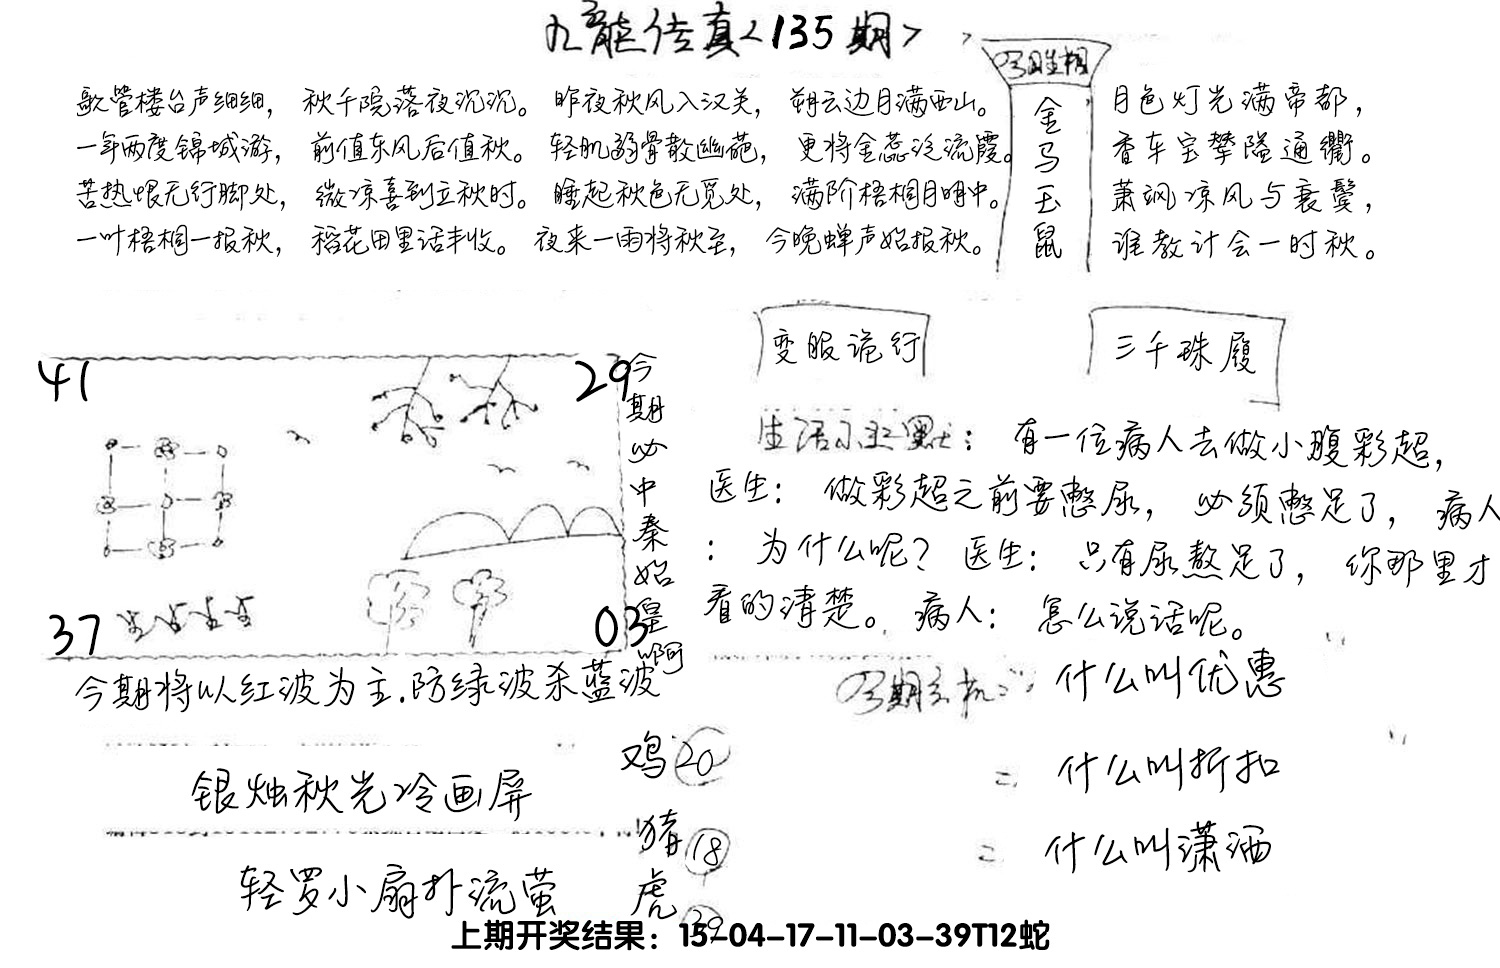 九龍传真<135期>
歌管楼台声细细，秋千院落夜沉沉。昨夜秋风入汉关，朔云边月满西山。
一年两度锦城游，前值东风后值秋。轻肌弱骨散幽葩，更将金蕊泛流霞。
苦热恨无行脚处，微凉喜到立秋时。睡起秋色无觅处，满阶梧桐月明中。
一叶梧桐一报秋，稻花田里话丰收。夜来一雨将秋至，今晚蝉声始报秋。
金马玉鼠
月色灯光满帝都，
香车宝辇隘通衢。
萧飒凉风与衰鬓，
谁教计会一时秋。
变服诡行
三千珠履
41
29
37
03
今期必中秦始皇啊
生活小幽默：有一位病人去做小腹彩超，
医生：做彩超之前要憋尿，必须憋足了，病人
：为什么呢？医生：只有尿熬足了，你那里才
看的清楚。病人：怎么说话呢。
今期将以红波为主.防绿波杀蓝波
今期玄机：什么叫优惠
什么叫折扣
什么叫潇洒
银烛秋光冷画屏
轻罗小扇扑流萤
鸡20
猪18
虎39
上期开奖结果：15-04-17-11-03-39T12蛇